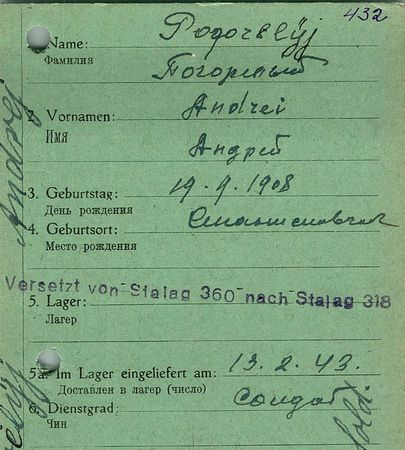 432
1. Name: Podorelyj
Фамилия Погорелый
2. Vornamen: Andrei
Имя Андрей
3. Geburtstag: 19.9.1908
День рождения
4. Geburtsort:
Место рождения
Versetzt von Stalag 360 nach Stalag 318
5. Lager:
Лагер
5a. Im Lager eingeliefert am: 13.2.43.
Доставлен в лагер (число)
6. Dienstgrad: Солдат
Чин
Sold.
Andrej